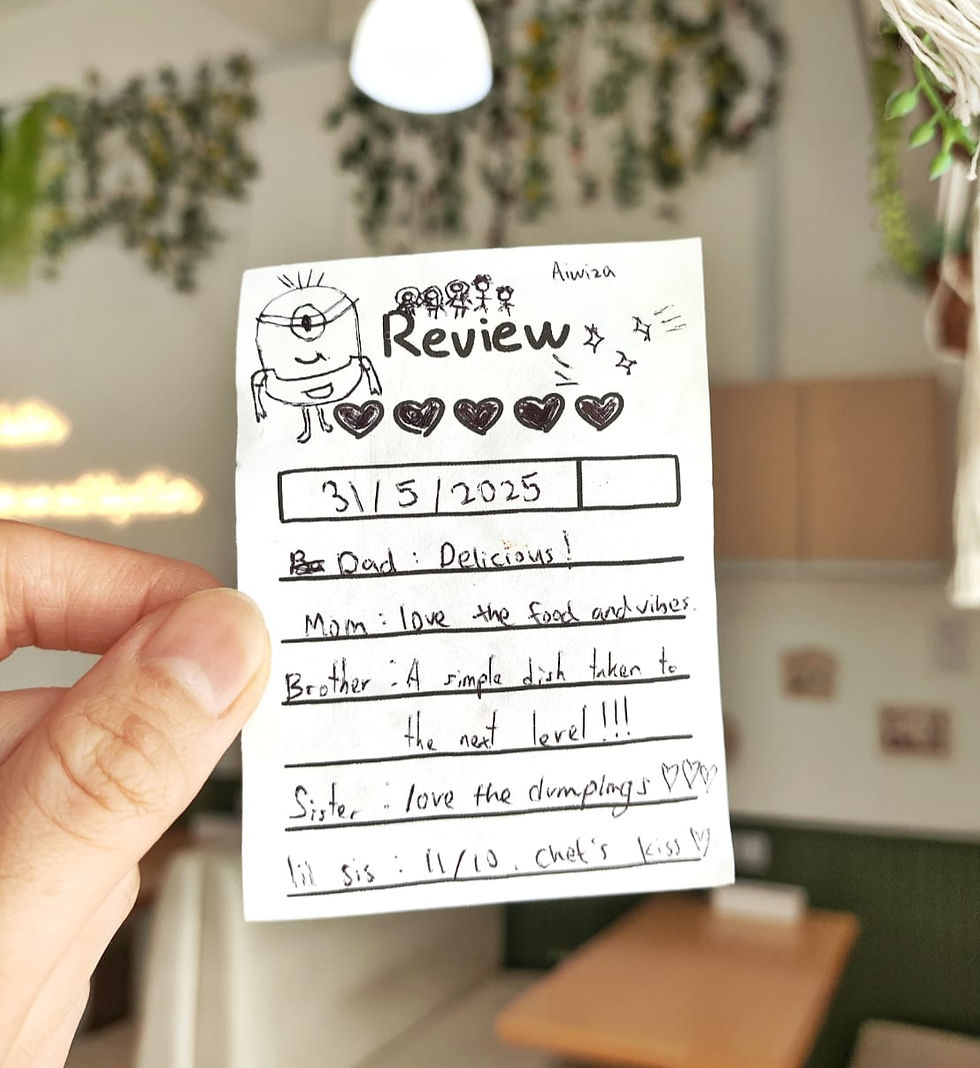 Aiwiza
Review
31/5/2025
Dad : Delicious!
Mom : love the food and vibes.
Brother : A simple dish taken to
the next level!!!
Sister : love the dumplings ♡♡♡
lil sis : 11/10. chef's kiss ♡